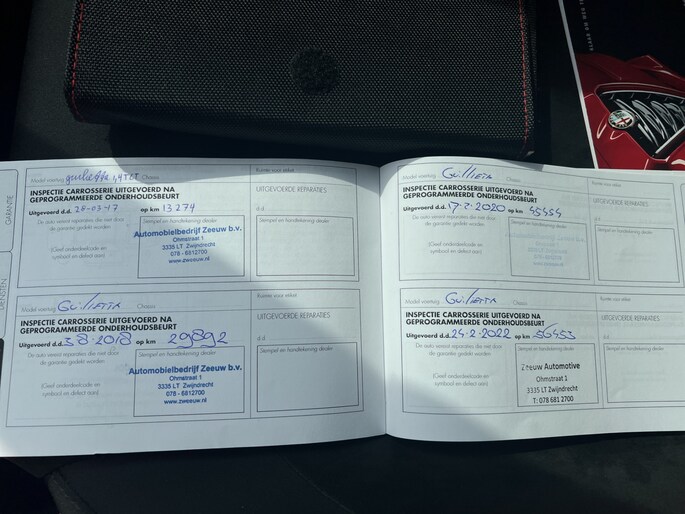 GARANTIE
Model voertuig giulietta 1,4 TCT Chassis
INSPECTIE CARROSSERIE UITGEVOERD NA
GEPROGRAMMEERDE ONDERHOUDSBEURT
Uitgevoerd d.d. 28-07-17 op km 13274
De auto vereist reparaties die niet door
de garantie gedekt worden
(Geef onderdeelcode en
symbool en defect aan)
Stempel en handtekening dealer
Automobielbedrijf Zeeuw b.v.
Ohmstraat 1
3335 LT Zwijndrecht
078 - 6812700
www.zweeuw.nl
Ruimte voor etiket
UITGEVOERDE REPARATIES
d.d.
Stempel en handtekening dealer
Model voertuig Guilietta Chassis
INSPECTIE CARROSSERIE UITGEVOERD NA
GEPROGRAMMEERDE ONDERHOUDSBEURT
Uitgevoerd d.d. 3.8.2018 op km 29892
De auto vereist reparaties die niet door
de garantie gedekt worden
(Geef onderdeelcode en
symbool en defect aan)
Stempel en handtekening dealer
Automobielbedrijf Zeeuw b.v.
Ohmstraat 1
3335 LT Zwijndrecht
078 - 6812700
www.zweeuw.nl
Ruimte voor etiket
UITGEVOERDE REPARATIES
d.d.
Stempel en handtekening dealer
Model voertuig Guilietta Chassis
INSPECTIE CARROSSERIE UITGEVOERD NA
GEPROGRAMMEERDE ONDERHOUDSBEURT
Uitgevoerd d.d. 17-2-2020 op km
De auto vereist reparaties die niet door
de garantie gedekt worden
(Geef onderdeelcode en
symbool en defect aan)
Stempel en handtekening dealer
Ruimte voor etiket
UITGEVOERDE REPARATIES
d.d.
Stempel en handtekening dealer
Model voertuig Guilietta Chassis
INSPECTIE CARROSSERIE UITGEVOERD NA
GEPROGRAMMEERDE ONDERHOUDSBEURT
Uitgevoerd d.d. 24-2-2022 op km 56453
De auto vereist reparaties die niet door
de garantie gedekt worden
(Geef onderdeelcode en
symbool en defect aan)
Stempel en handtekening dealer
Zeeuw Automotive
Ohmstraat 1
3335 LT Zwijndrecht
T: 078 681 2700
Ruimte voor etiket
UITGEVOERDE REPARATIES
d.d.
Stempel en handtekening dealer